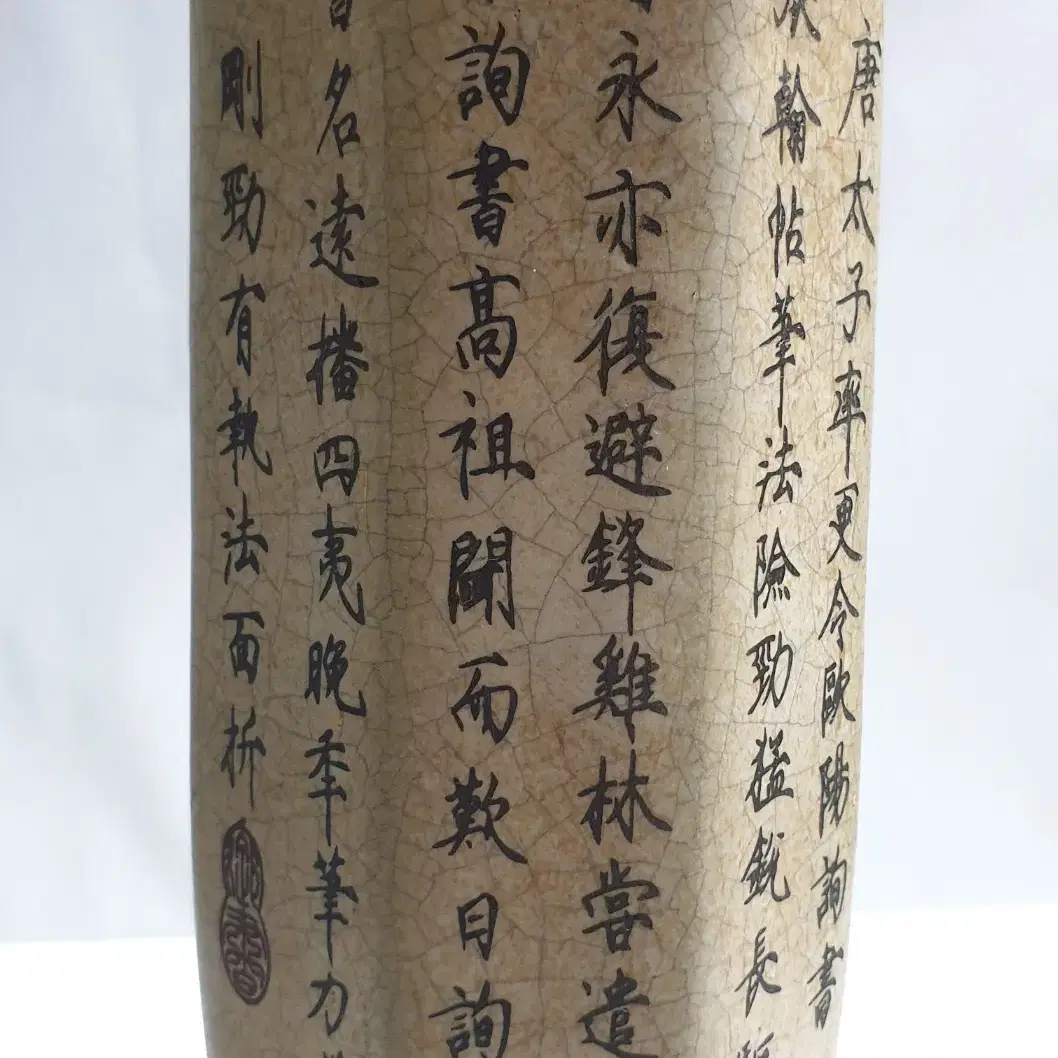 唐太子率更令歐陽詢書
翰帖筆法險勁猛銳長
永亦復避鋒雞林嘗遣
詢書髙祖聞而歎曰詢
名遠播四夷晚年筆力
剛勁有執法面折